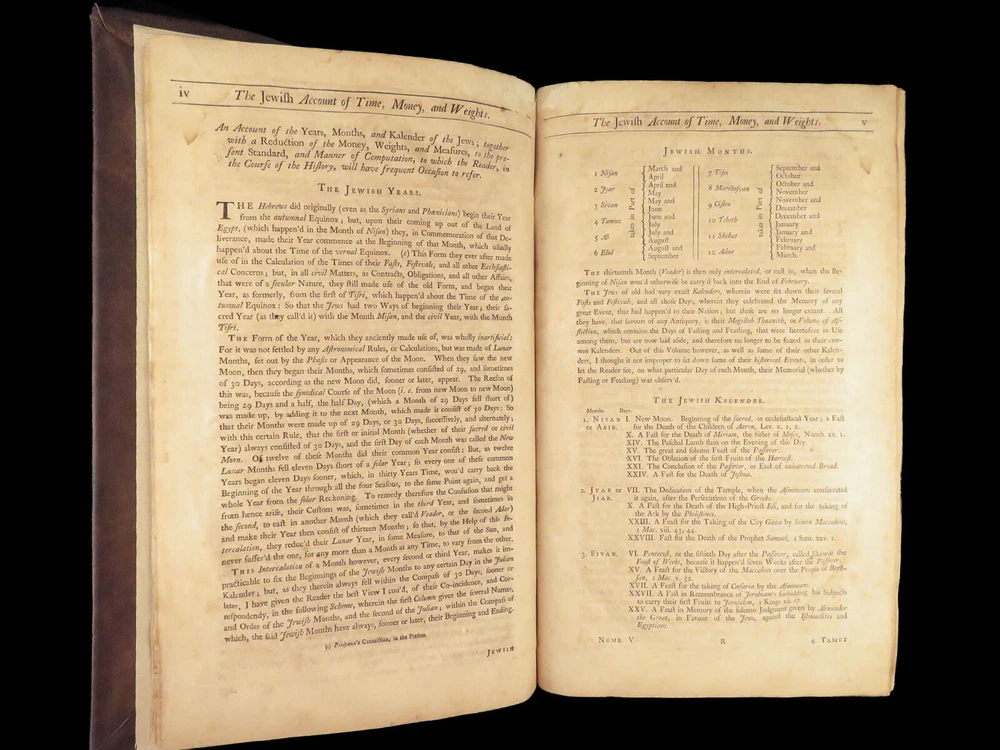 iv
The Jewiſh Account of Time, Money, and Weights.
An Account of the Years, Months, and Kalender of the Jews; together
with a Reduction of the Money, Weights, and Meaſures, to the pre-
ſent Standard, and Manner of Computation, to which the Reader, in
the Courſe of the Hiſtory, will have frequent Occaſion to refer.
THE JEWISH YEARS.
THE Hebrews did originally (even as the Syrians and Phœnicians) begin their Year
from the autumnal Equinox; but, upon their coming up out of the Land of
Egypt, (which happen'd in the Month of Niſan) they, in Commemoration of that De-
liverance, made their Year commence at the Beginning of that Month, which uſually
happen'd about the Time of the vernal Equinox. (e) This Form they ever after made
uſe of in the Calculation of the Times of their Faſts, Feſtivals, and all other Eccleſiaſti-
cal Concerns; but, in all civil Matters, as Contracts, Obligations, and all other Affairs,
that were of a ſecular Nature, they ſtill made uſe of the old Form, and began their
Year, as formerly, from the firſt of Tiſri, which happen'd about the Time of the au-
tumnal Equinox: So that the Jews had two Ways of beginning their Year; their ſa-
cred Year (as they call'd it) with the Month Niſan, and the civil Year, with the Month
Tiſri.
THE Form of the Year, which they anciently made uſe of, was wholly inartificial:
For it was not ſettled by any Aſtronomical Rules, or Calculations, but was made of Lunar
Months, ſet out by the Phaſis or Appearance of the Moon. When they ſaw the new
Moon, then they began their Months, which ſometimes conſiſted of 29, and ſometimes
of 30 Days, according as the new Moon did, ſooner or later, appear. The Reaſon of
this was, becauſe the ſynodical Courſe of the Moon (i. e. from new Moon to new Moon)
being 29 Days and a half, the half Day, (which a Month of 29 Days fell ſhort of)
was made up, by adding it to the next Month, which made it conſiſt of 30 Days; So
that their Months were made up of 29 Days, or 30 Days, ſucceſſively, and alternately;
with this certain Rule, that the firſt or initial Month (whether of their ſacred or civil
Year) always conſiſted of 30 Days, and the firſt Day of each Month was called the New
Moon. Of twelve of theſe Months did their common Year conſiſt: But, as twelve
Lunar Months fell eleven Days ſhort of a ſolar Year; ſo every one of theſe common
Years began eleven Days ſooner, which, in thirty Years Time, wou'd carry back the
Beginning of the Year through all the four Seaſons, to the ſame Point again, and get a
whole Year from the ſolar Reckoning. To remedy therefore the Confuſion that might
from hence ariſe, their Cuſtom was, ſometimes in the third Year, and ſometimes in
the ſecond, to caſt in another Month (which they call'd Veader, or the ſecond Adar)
and make their Year then conſiſt of thirteen Months; ſo that, by the Help of this In-
tercalation, they reduc'd their Lunar Year, in ſome Meaſure, to that of the Sun, and
never ſuffer'd the one, for any more than a Month at any Time, to vary from the other.
THIS Intercalation of a Month however, every ſecond or third Year, makes it im-
practicable to fix the Beginnings of the Jewiſh Months to any certain Day in the Julian
Kalender; but, as they therein always fell within the Compaſs of 30 Days, ſooner or
later, I have given the Reader the beſt View I cou'd, of theſe Co-incidence, and Cor-
reſpondency, in the following Scheme, wherein the firſt Column gives the ſeveral Names,
and Order of the Jewiſh Months, and the ſecond of the Julian; within the Compaſs of
which, the ſaid Jewiſh Months have always, ſooner or later, their Beginning and Ending.
(e) Prideaux's Connection, in the Preface.
JEWISH
The Jewiſh Account of Time, Money, and Weights.
v
JEWISH MONTHS.
1 Niſan
2 Jyar
3 Sivan
4 Tamuz
5 Ab
6 Elul
takes in Part of
March and
April
April and
May
May and
June
June and
July
July and
Auguſt
Auguſt and
September
7 Tiſri
8 Marcheſvan
9 Ciſleu
10 Tebeth
11 Shebat
12 Adar
takes in Part of
September and
October
October and
November
November and
December
December and
January
January and
February
February and
March.
THE thirteenth Month (Veader) is then only intercalated, or caſt in, when the Be-
ginning of Niſan wou'd otherwiſe be carry'd back into the End of February.
THE Jews of old had very exact Kalenders, wherein were ſet down their ſeveral
Faſts and Feſtivals, and all thoſe Days, wherein they celebrated the Memory of any
great Event, that had happen'd to their Nation; but theſe are no longer extant. All
they have, that ſavours of any Antiquity, is their Megillah Thaanith, or Volume of Af-
fliction, which contains the Days of Faſting and Feaſting, that were heretofore in Uſe
among them, but are now laid aſide, and therefore no longer to be found in their com-
mon Kalenders. Out of this Volume however, as well as ſome of their other Kalen-
ders, I thought it not improper to ſet down ſome of their hiſtorical Events, in order to
let the Reader ſee, on what particular Day of each Month, their Memorial (whether by
Faſting or Feaſting) was obſerv'd.
THE JEWISH KALENDER.
Months. Days.
1. NISAN or ABIB. I. New Moon. Beginning of the ſacred, or eccleſiaſtical Year; a Faſt
for the Death of the Children of Aaron, Lev. x. 1, 2.
X. A Faſt for the Death of Miriam, the Siſter of Moſes, Numb. xx. 1.
XIV. The Paſchal Lamb ſlain on the Evening of this Day.
XV. The great and ſolemn Feaſt of the Paſſover.
XVI. The Oblation of the firſt Fruits of the Harveſt.
XXI. The Concluſion of the Paſſover, or End of unleavened Bread.
XXIV. A Faſt for the Death of Joſhua.
2. JYAR or JIAR. VII. The Dedication of the Temple, when the Aſmoneans conſecrated
it again, after the Perſecutions of the Greeks.
X. A Faſt for the Death of the High-Prieſt Eli, and for the taking of
the Ark by the Philiſtines.
XXIII. A Feaſt for the Taking of the City Gaza by Simon Maccabeus,
1 Mac. xiii. 43, 44.
XXVIII. Faſt for the Death of the Prophet Samuel, 1 Sam. xxv. 1.
3. SIVAN. VI. Pentecoſt, or the fiftieth Day after the Paſſover, called likewiſe the
Feaſt of Weeks, becauſe it happen'd ſeven Weeks after the Paſſover.
XV. A Feaſt for the Victory of the Maccabees over the People of Beth-
ſan, 1 Mac. v. 52.
XVII. A Feaſt for the taking of Cæſarea by the Aſmoneans.
XXVII. A Faſt in Remembrance of Jeroboam's forbidding his Subjects
to carry their firſt Fruits to Jeruſalem, 1 Kings xii. 27.
XXV. A Feaſt in Memory of the ſolemn Judgment given by Alexander
the Great, in Favour of the Jews, againſt the Iſhmaelites and
Egyptians.
NUMB. V
R
4. TAMUZ